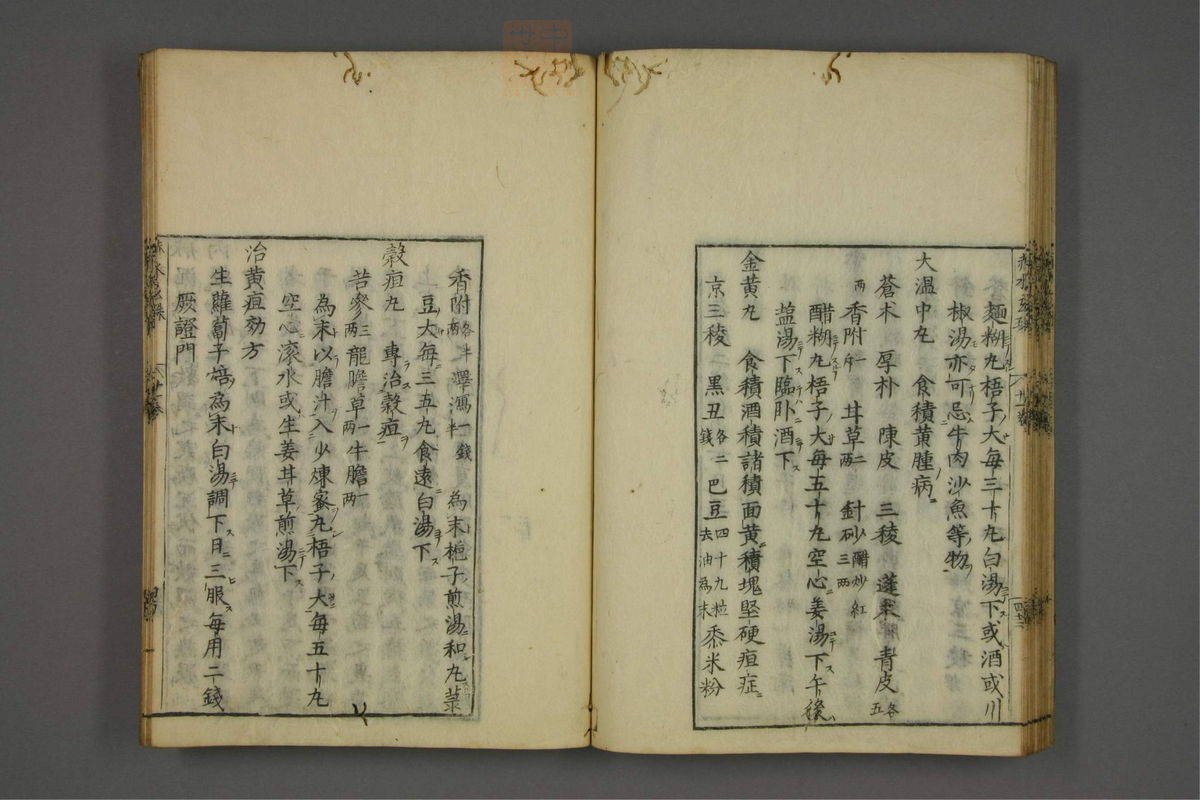 麵糊丸梧子大每三十丸白湯下或酒或川
椒湯亦可忌牛肉沙魚等物
大溫中丸 食積黃腫病
蒼朮 厚朴 陳皮 三稜 蓬朮 青皮各五
兩 香附一斤 甘草二兩 針砂醋炒紅三兩
醋糊丸梧子大每五十丸空心姜湯下午後
盐湯下臨卧酒下
金黃丸 食積酒積諸積面黃積塊堅硬疸症
京三稜 黑丑各二錢 巴豆四十九粒去油為末 黍米粉
香附各半兩 澤瀉一錢半 為末梔子煎湯和丸菉
豆大每三五丸食遠白湯下
穀疸丸 專治穀疸
苦參三兩 龍膽草一兩 牛膽一兩
為末以膽汁入少煉蜜丸梧子大每五十丸
空心滚水或生姜甘草煎湯下
治黃疸効方
生蘿蔔子焙為末白湯調下日三服每用二錢
厥證門